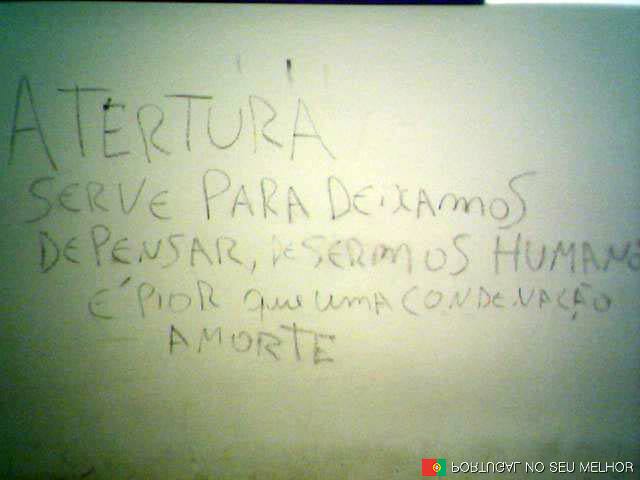 ATERTURA
SERVE PARA DEIXAMOS
DEPENSAR, DE SERMOS HUMANO
E' PIOR que uma CONDENAÇÃO
AMORTE
PORTUGAL NO SEU MELHOR